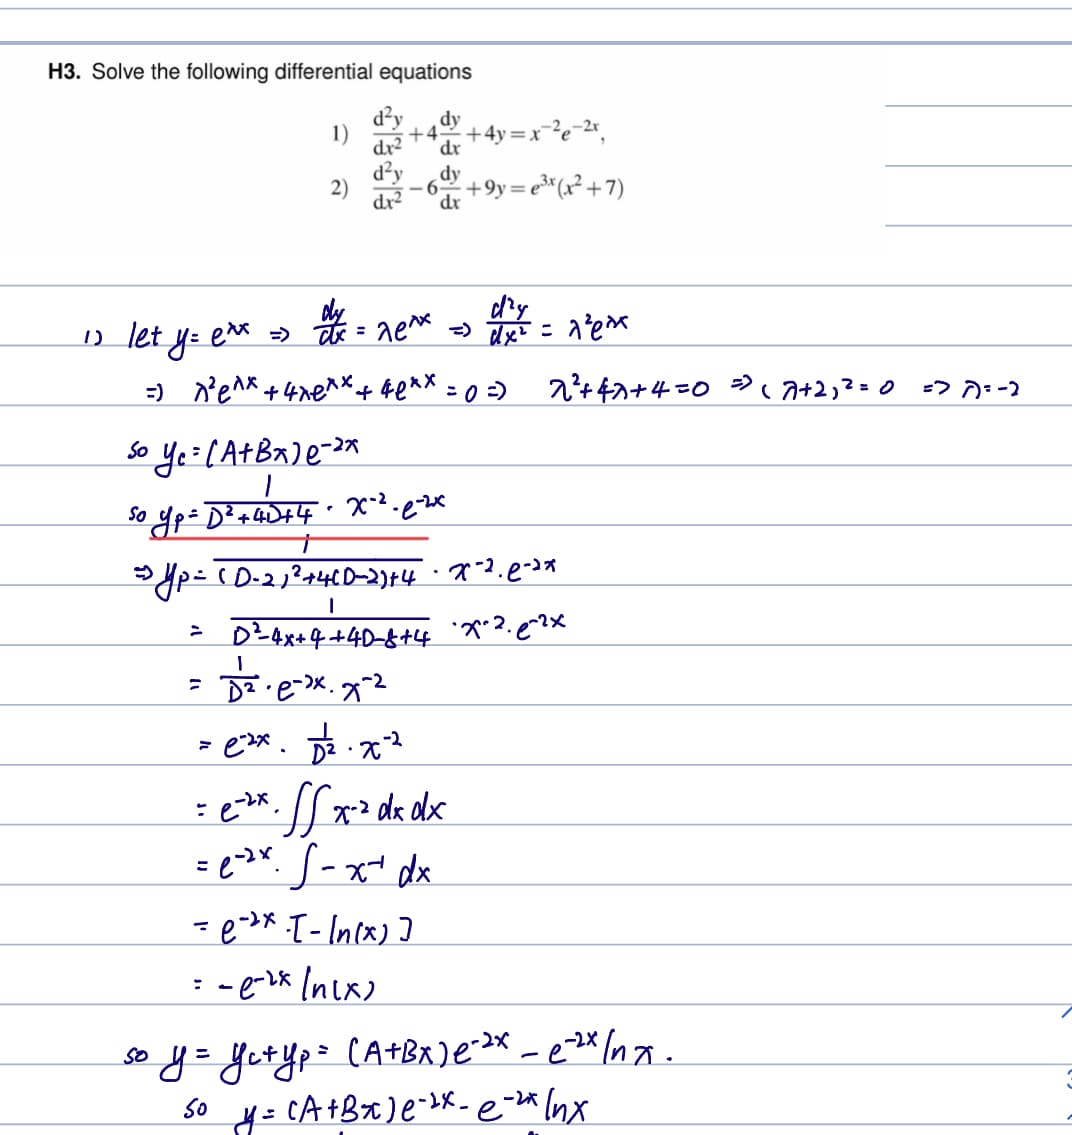 H3. Solve the following differential equations
1) d²y/dx² + 4 dy/dx + 4y = x⁻²e⁻²ˣ,
2) d²y/dx² − 6 dy/dx + 9y = e³ˣ(x² + 7)
1) let y = e^λx ⇒ dy/dx = λe^λx ⇒ d²y/dx² = λ²e^λx
⇒ λ²e^λx + 4λe^λx + 4e^λx = 0 ⇒ λ² + 4λ + 4 = 0 ⇒ (λ+2)² = 0 ⇒ λ = −2
so yc = (A+Bx)e^−2x
so yp = 1/(D²+4D+4) · x^−2 · e^−2x
⇒ yp = 1/((D−2)²+4(D−2)+4) · x^−2 . e^−2x
= 1/(D²−4x+4+4D−8+4) · x^−2 . e^−2x
= 1/D² · e^−2x . x^−2
= e^−2x . 1/D² · x^−2
= e^−2x . ∫∫ x^−2 dx dx
= e^−2x . ∫ − x^−1 dx
= e^−2x · [− ln(x)]
= − e^−2x ln(x)
so y = yc+yp = (A+Bx)e^−2x − e^−2x ln x .
so y = (A+Bx)e^−2x − e^−2x lnx